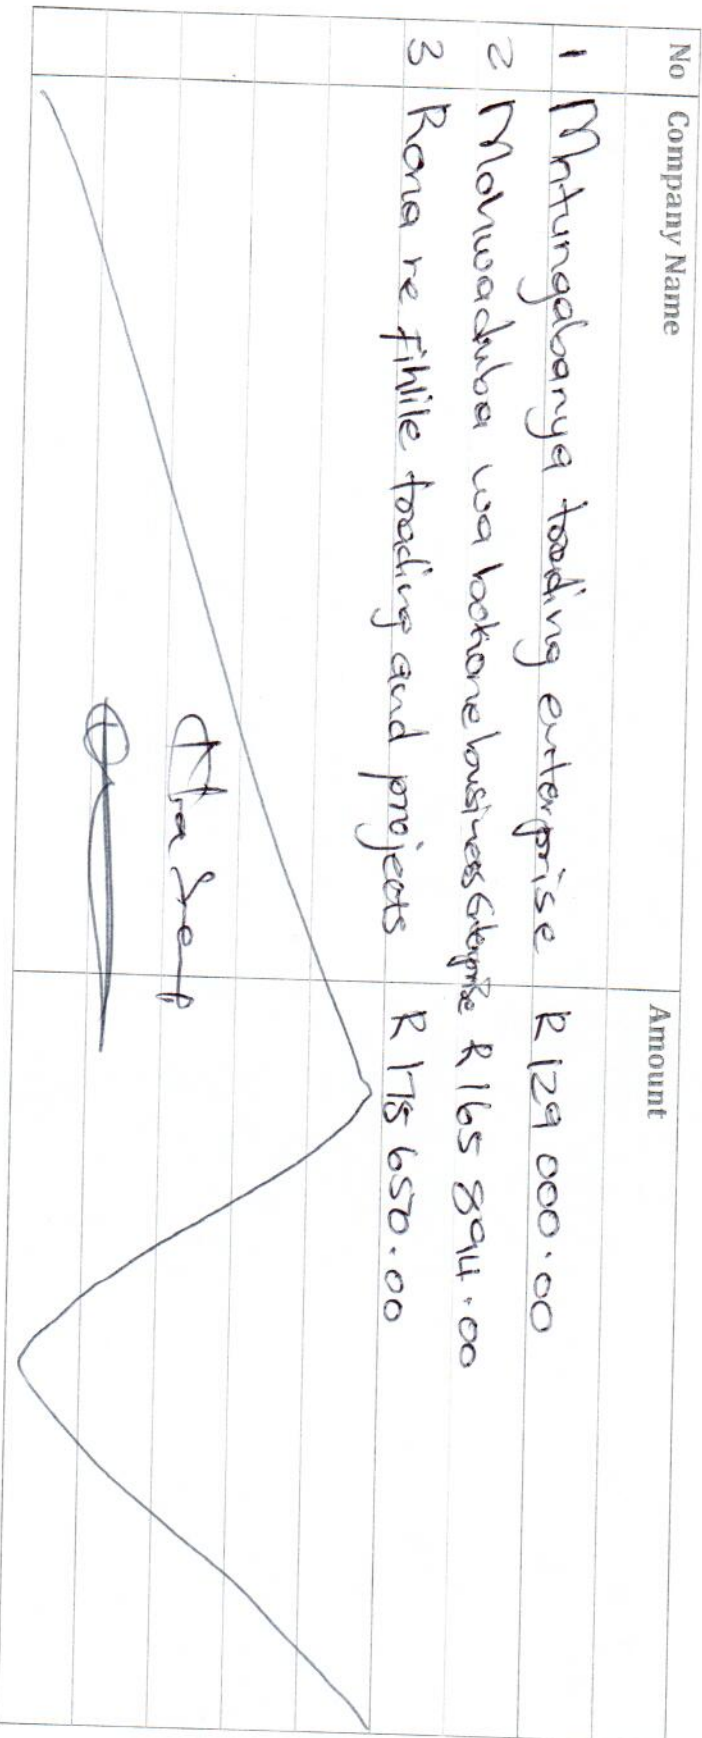 No Company Name Amount
1 Mntungabanya trading enterprise R 129 000.00
2 wa business Enterprise R 165 894.00
3 Rona re fihlile trading and projects R 178 650.00